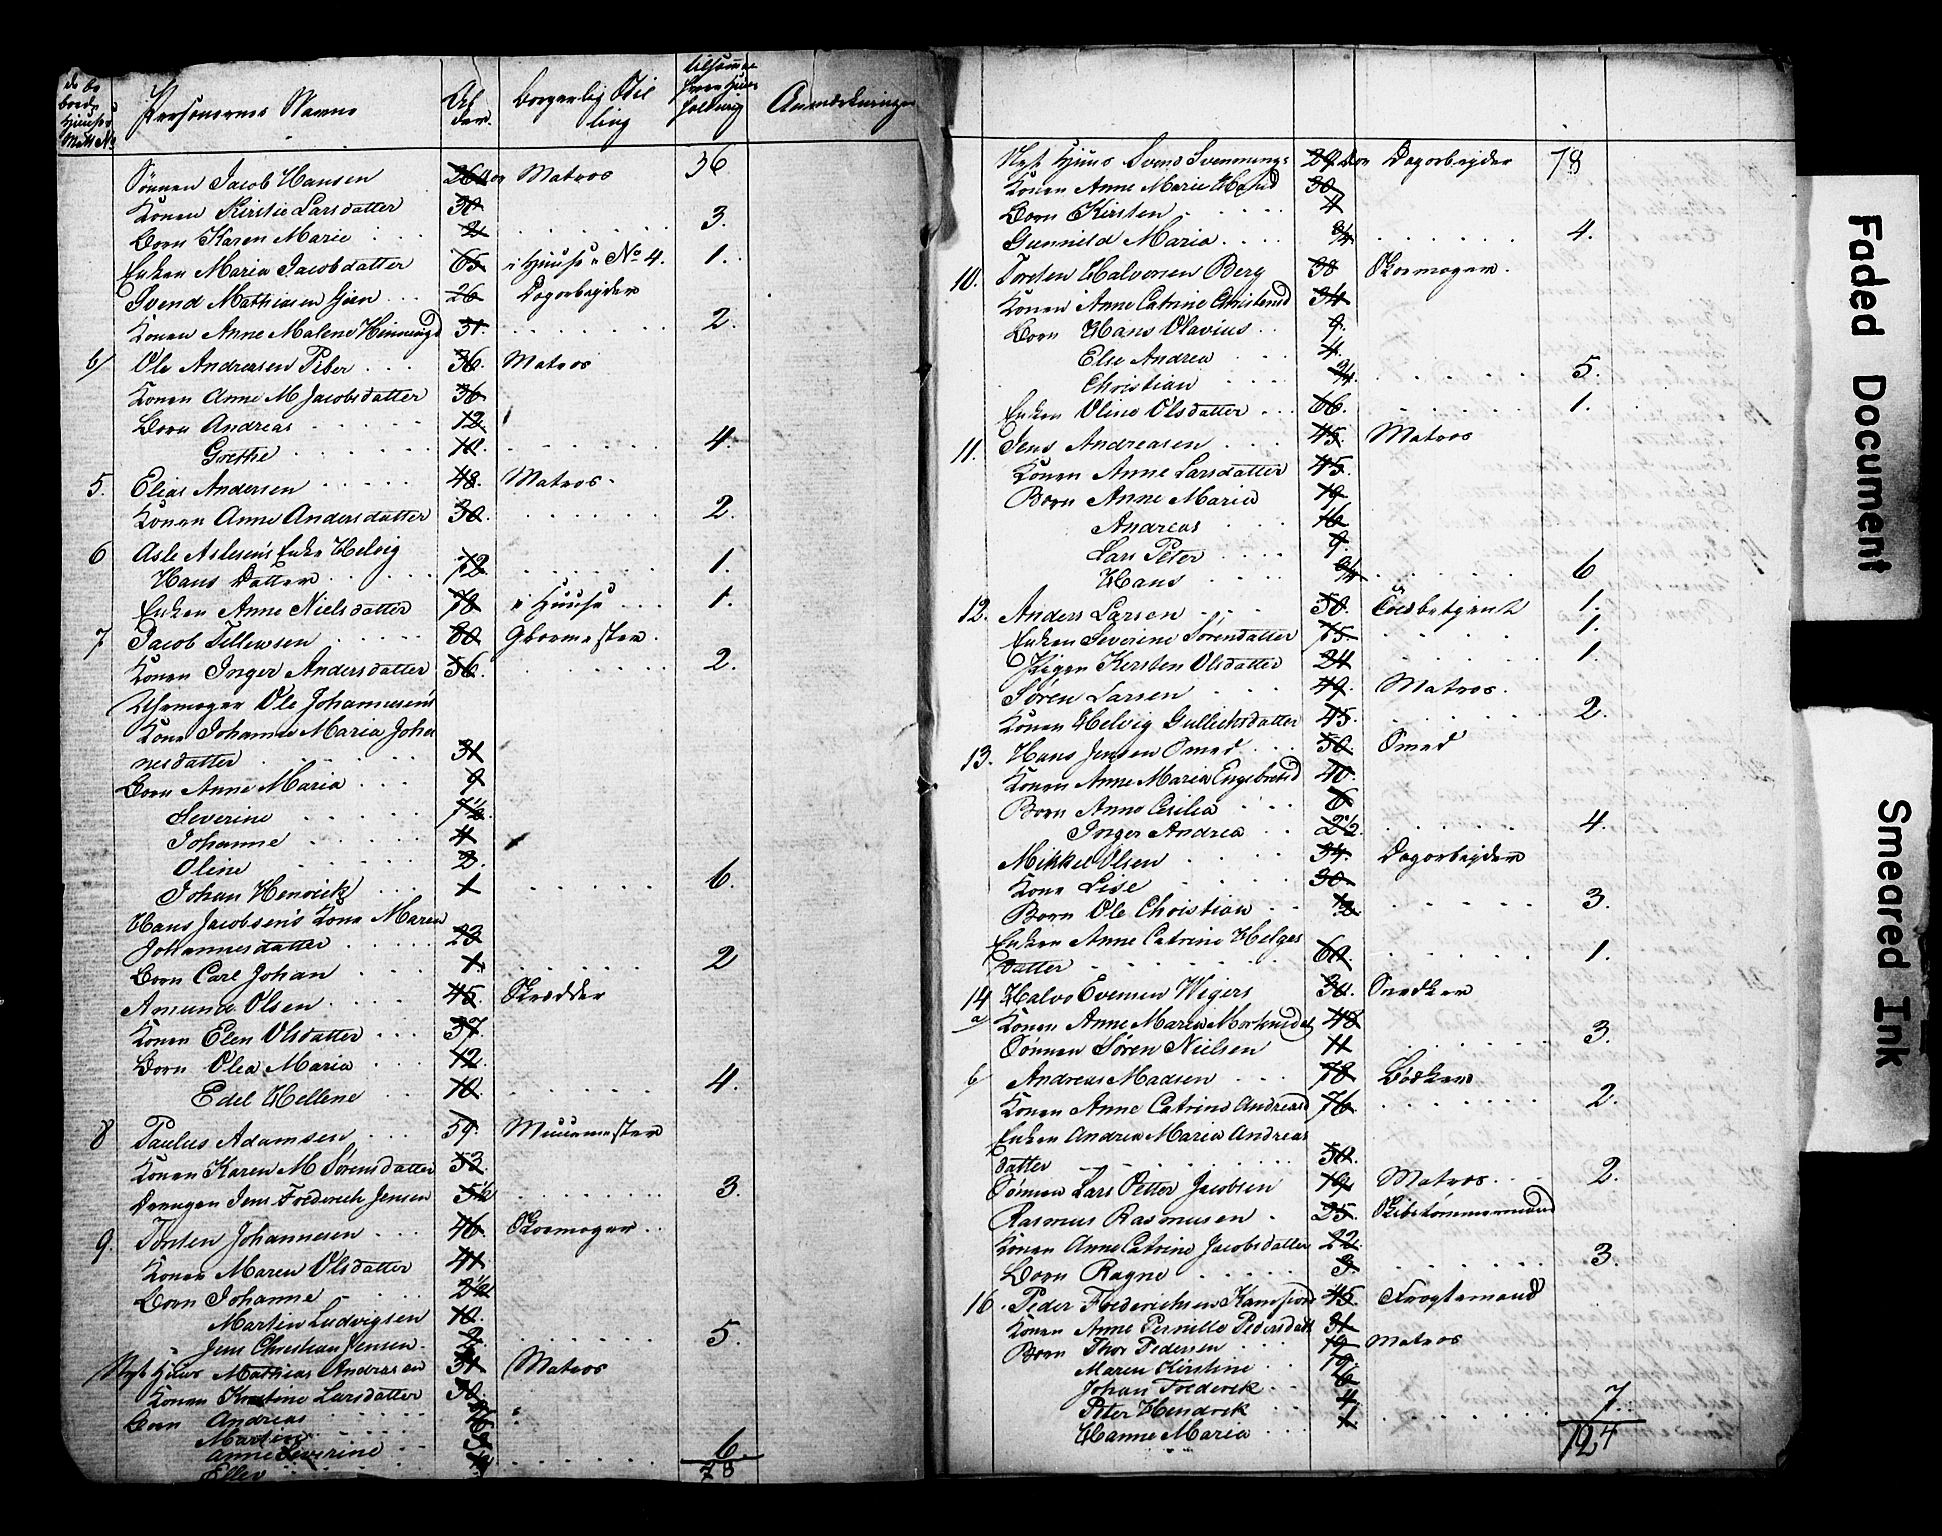 Personernes Navne Alder borgerlig Stilling Anmærkninger
36
Sönnen Jacob Hansen 26 Aar Matros
Konen Kirstie Larsdatter 30
Born Karen Marie 2 3.
Enken Maria Jacobsdatter 65 i Huuse No 4. 1.
Svend Mathiasen 26 Dagarbejder
Konen Anne Malene 31 2.
6/ Ole Andreasen Piber 36. Matros
Konen Anne M Jacobsdatter 36
Born Andreas 12
Grethe 10 4.
5. Elias Andersen 48. Matros.
Konen Anne Andersdatter 30 2.
6 Asle Aslesens Enke Helvig
Hans Datter 72 1.
Enken Anne Nielsdatter 78 i Huuse 1.
7. Jacob Tellewsen 60 Glarmester
Konen Inger Andersdatter 56. 2.
Uhrmager Ole Johannesens
Kone Johanne Maria Joha
nesdatter 31
Born Anne Maria 9
Severine 7½
Johanne 4
Oline 2
Johan Henrick 1 6.
Hans Jacobsens Kone Maren
Johannesdatter 23
Born Carl Johan 1 2
Amund Olsen 45. Skrædder
Konen Elen Olsdatter 37
Born Olea Maria 12
Edel Hellene 10 4.
8 Paulus Adamsen 59. Muurmester
Konen Karen M Sørensdatter 53
Drengen Jens Frederich Jensen 5½ 3.
9. Torsten Johannesen 46 Skomager
Konen Maren Olsdatter 41
Born Johanne 2½
Martin Ludvigsen 10.
Jens Christian Jensen 2 5.
Nyt Huus Mathias Andreasen 34 Matros
Konen Kirstine Larsdatter 30
Born Andreas
Martine
Anne Severine 6.
Ellev 78
Nyt Huus Svend Svennings 29 Aar Dagarbejder 78
Konen Anne Marie 30
Born Kirsten 4
Gunnild Maria ¾ 4.
10. Torsten Halvorsen Berg 38 Skomager.
Konen Anne Catrine Christensd 34
Born Hans Olavius 9.
Else Andrea 4.
Christian ¾ 5.
Enken Oline Olsdatter 66. 1.
11. Jens Andreasen 45. Matros
Konen Anne Larsdatter 45.
Born Anne Maria 19
Andreas 16
Lars Peter 9.
Hans ¾ 6
12. Anders Larsen 50. Toldbetjent 1.
Enken Severine Sørensdatter 75 1.
Pigen Kirsten Olsdatter 24 1.
Søren Larsen 49. Matros. 2.
Konen Helvig Gullichsdatter 45.
13. Hans Jensen Smed 50. Smed
Konen Anne Maria Engebretsd 40.
Born Anne Cesilia 6
Inger Andrea 2½. 4.
Mikkel Olsen 34. Dagarbejder
Kone Lise 30.
Born Ole Christian ½ 3.
Enken Anne Catrine Helges
datter 60. 1.
14 Halvo Evensen Wigers 30. Snedker
a Konen Anne Maria Mortensdat 48
Sönnen Søren Nielsen 11 3.
b Andreas Madsen 78 Bödker
Konen Anne Catrine Andreasd 76 2.
Enken Andrea Maria Andreas
datter 50.
Sönnen Lars Petter Jacobsen 19 Matros 2.
Rasmus Rasmusen 25. Skibstømmermand
Konen Anne Catrine Jacobsdatter 22
Born Ragne 3. 3.
16. Peder Frederichsen 45. Fragtemand
Konen Anne Pernille Pedersdatt 31
Born Thor Pedersen 19 Matros
Maren Kirstine 12
Johan Frederik 6
Peter Hendrik 4 7.
Hanne Maria 1 124
Faded Document
Smeared Ink